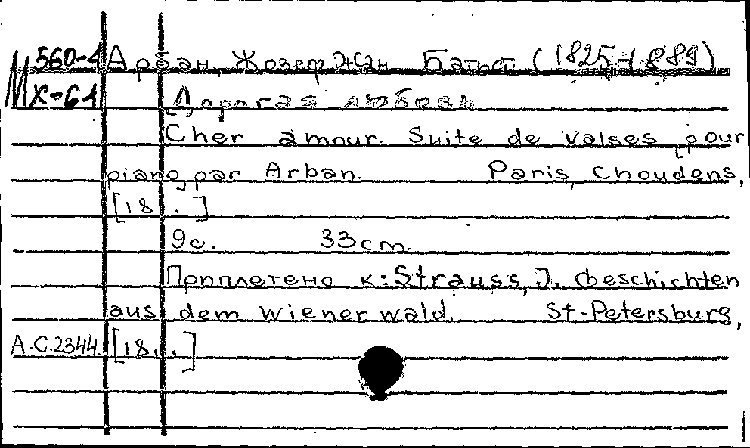 М 560-4 Арбан, Жозеф Жан Батист (1825-1889)
X-61 Дорогая любовь
Cher amour. Suite de valses pour
piano par Arban. Paris, Choudens,
[18..]
9с. 33cm.
Приплетено к: Strauss, J. Geschichten
aus dem Wienerwald. St-Petersburg,
А.С.2344. [18..]